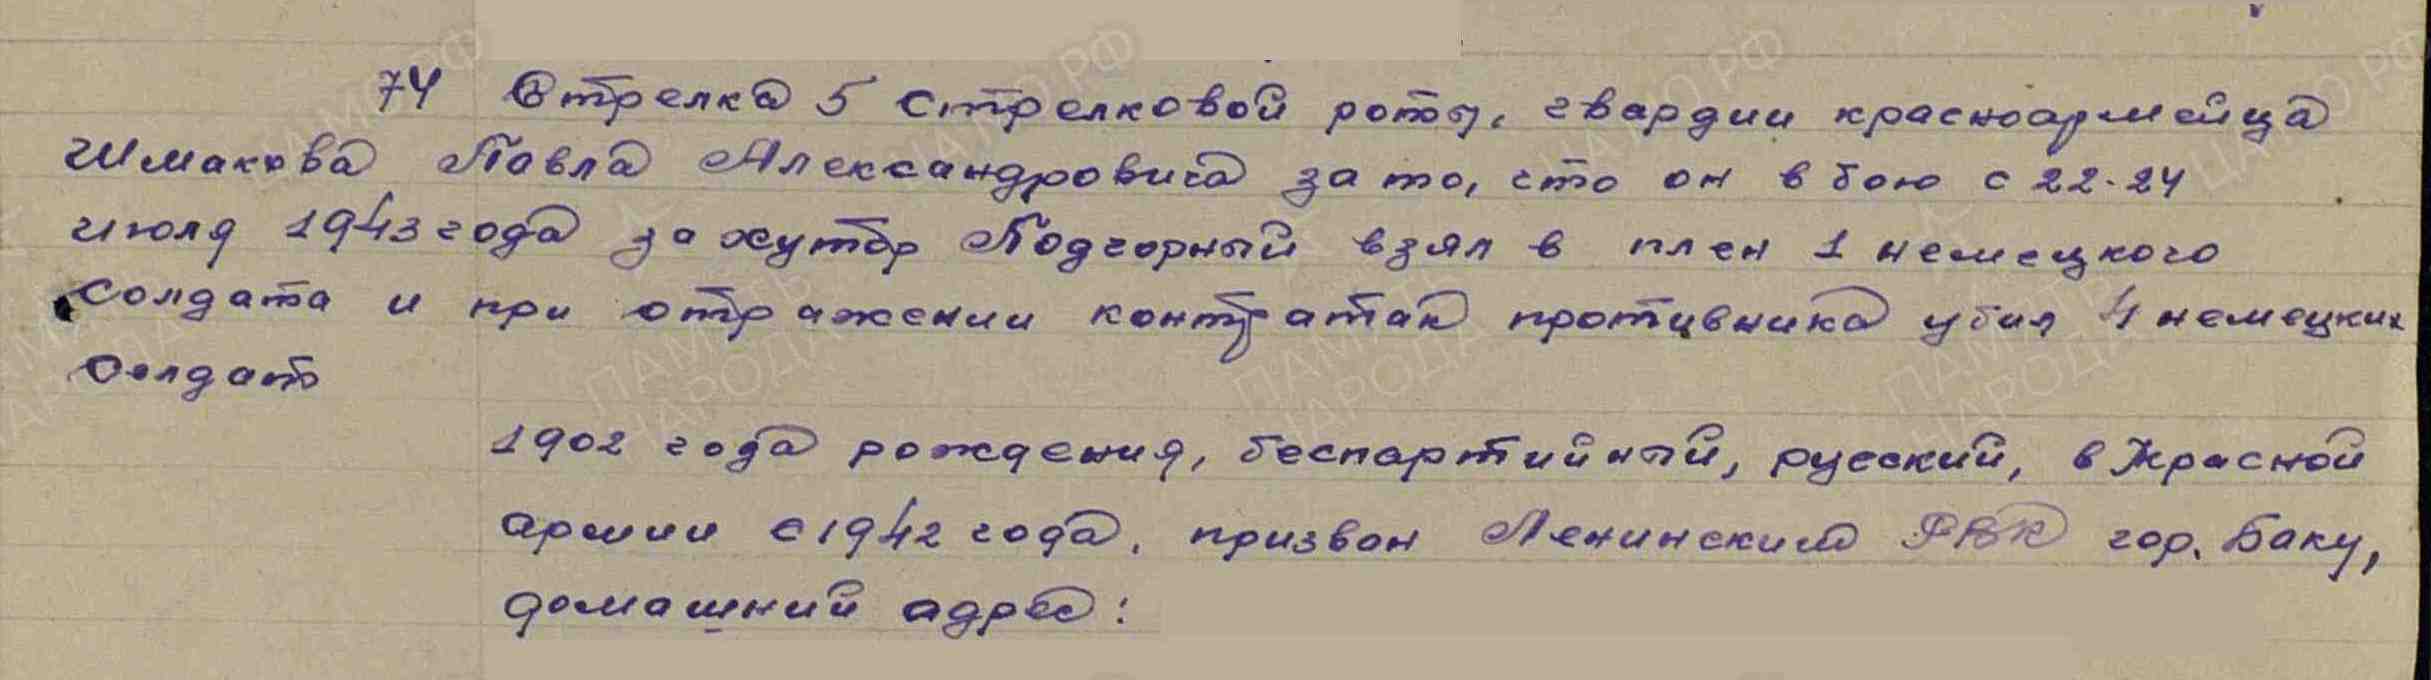 74 Стрелка 5 стрелковой роты, гвардии красноармейца
Шмакова Павла Александровича за то, что он в бою с 22-24
июля 1943 года за хутор Подгорный взял в плен 1 немецкого
солдата и при отражении контратак противника убил 4 немецких
солдат
1902 года рождения, беспартийный, русский, в Красной
армии с 1942 года, призван Ленинским РВК гор. Баку,
домашний адрес: